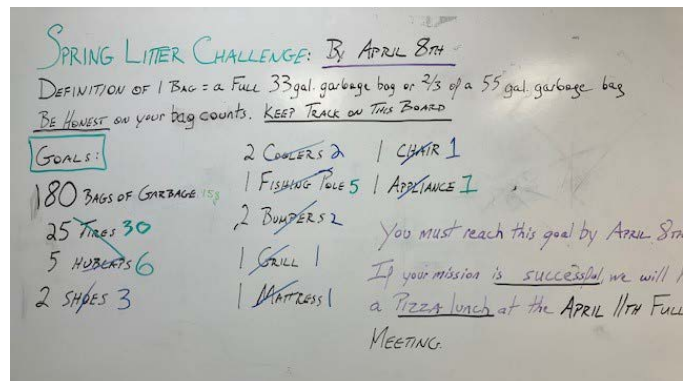 SPRING LITTER CHALLENGE: BY APRIL 8TH
DEFINITION OF 1 BAG = a FULL 33 gal. garbage bag or 2/3 of a 55 gal. garbage bag
BE HONEST on your bag counts. KEEP TRACK ON THIS BOARD
GOALS:
180 BAGS OF GARBAGE
25 TIRES 30
5 HUBCAPS 6
2 SHOES 3
2 COOLERS 2
1 FISHING POLE 5
2 BUMPERS 2
1 GRILL 1
1 MATTRESS 1
1 CHAIR 1
1 APPLIANCE 1
You must reach this goal by APRIL 8TH
If your mission is successful, we will
a PIZZA lunch at the APRIL 11TH FULL
MEETING.